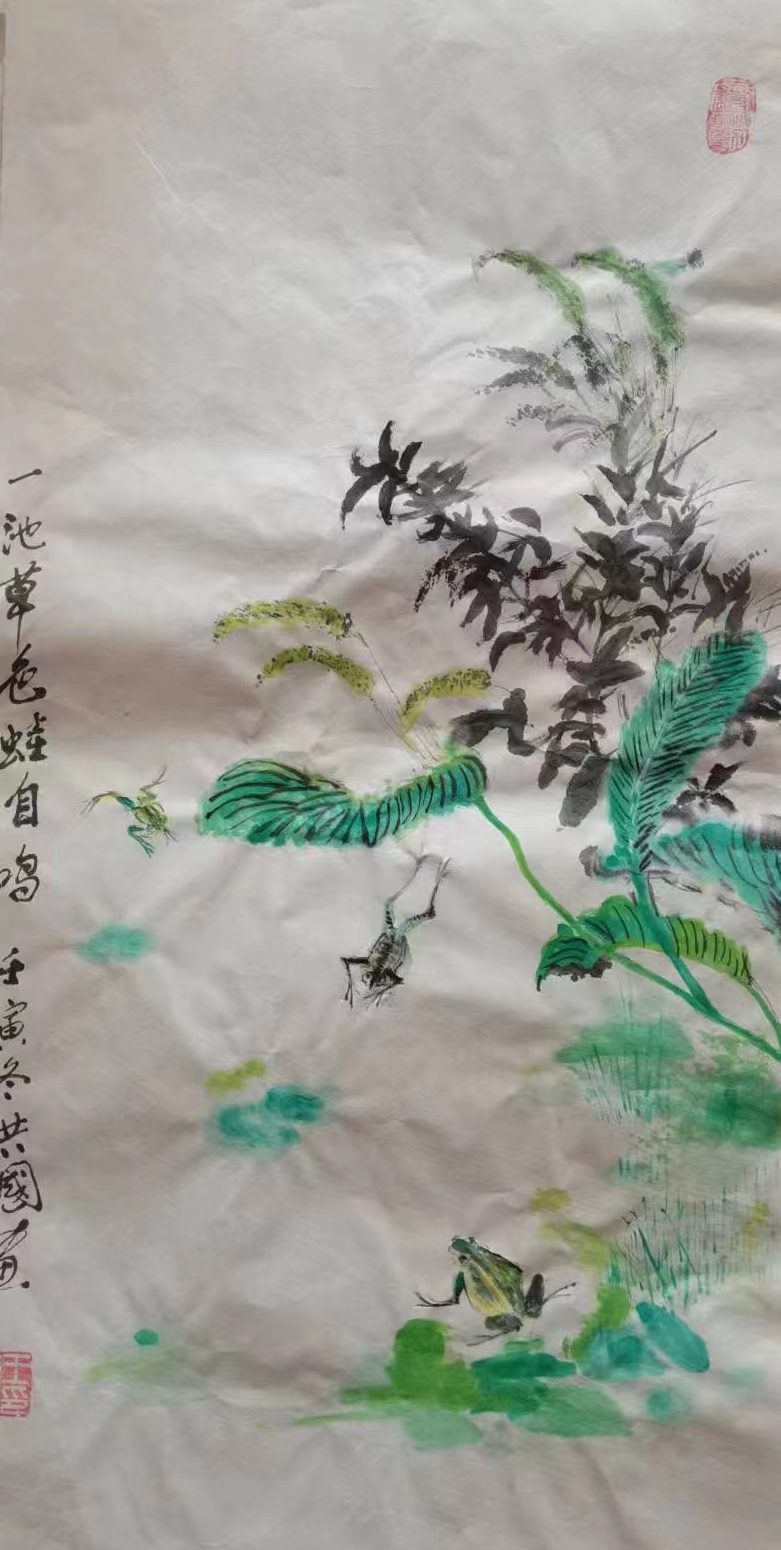 一池草色蛙自鸣 壬寅冬共國画